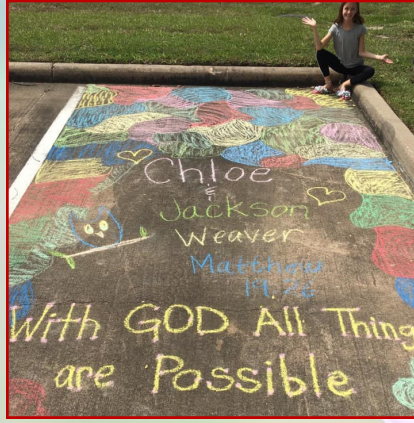 Chloe
&
Jackson
Weaver
Matthew
19:26
With GOD All Thing
are Possible